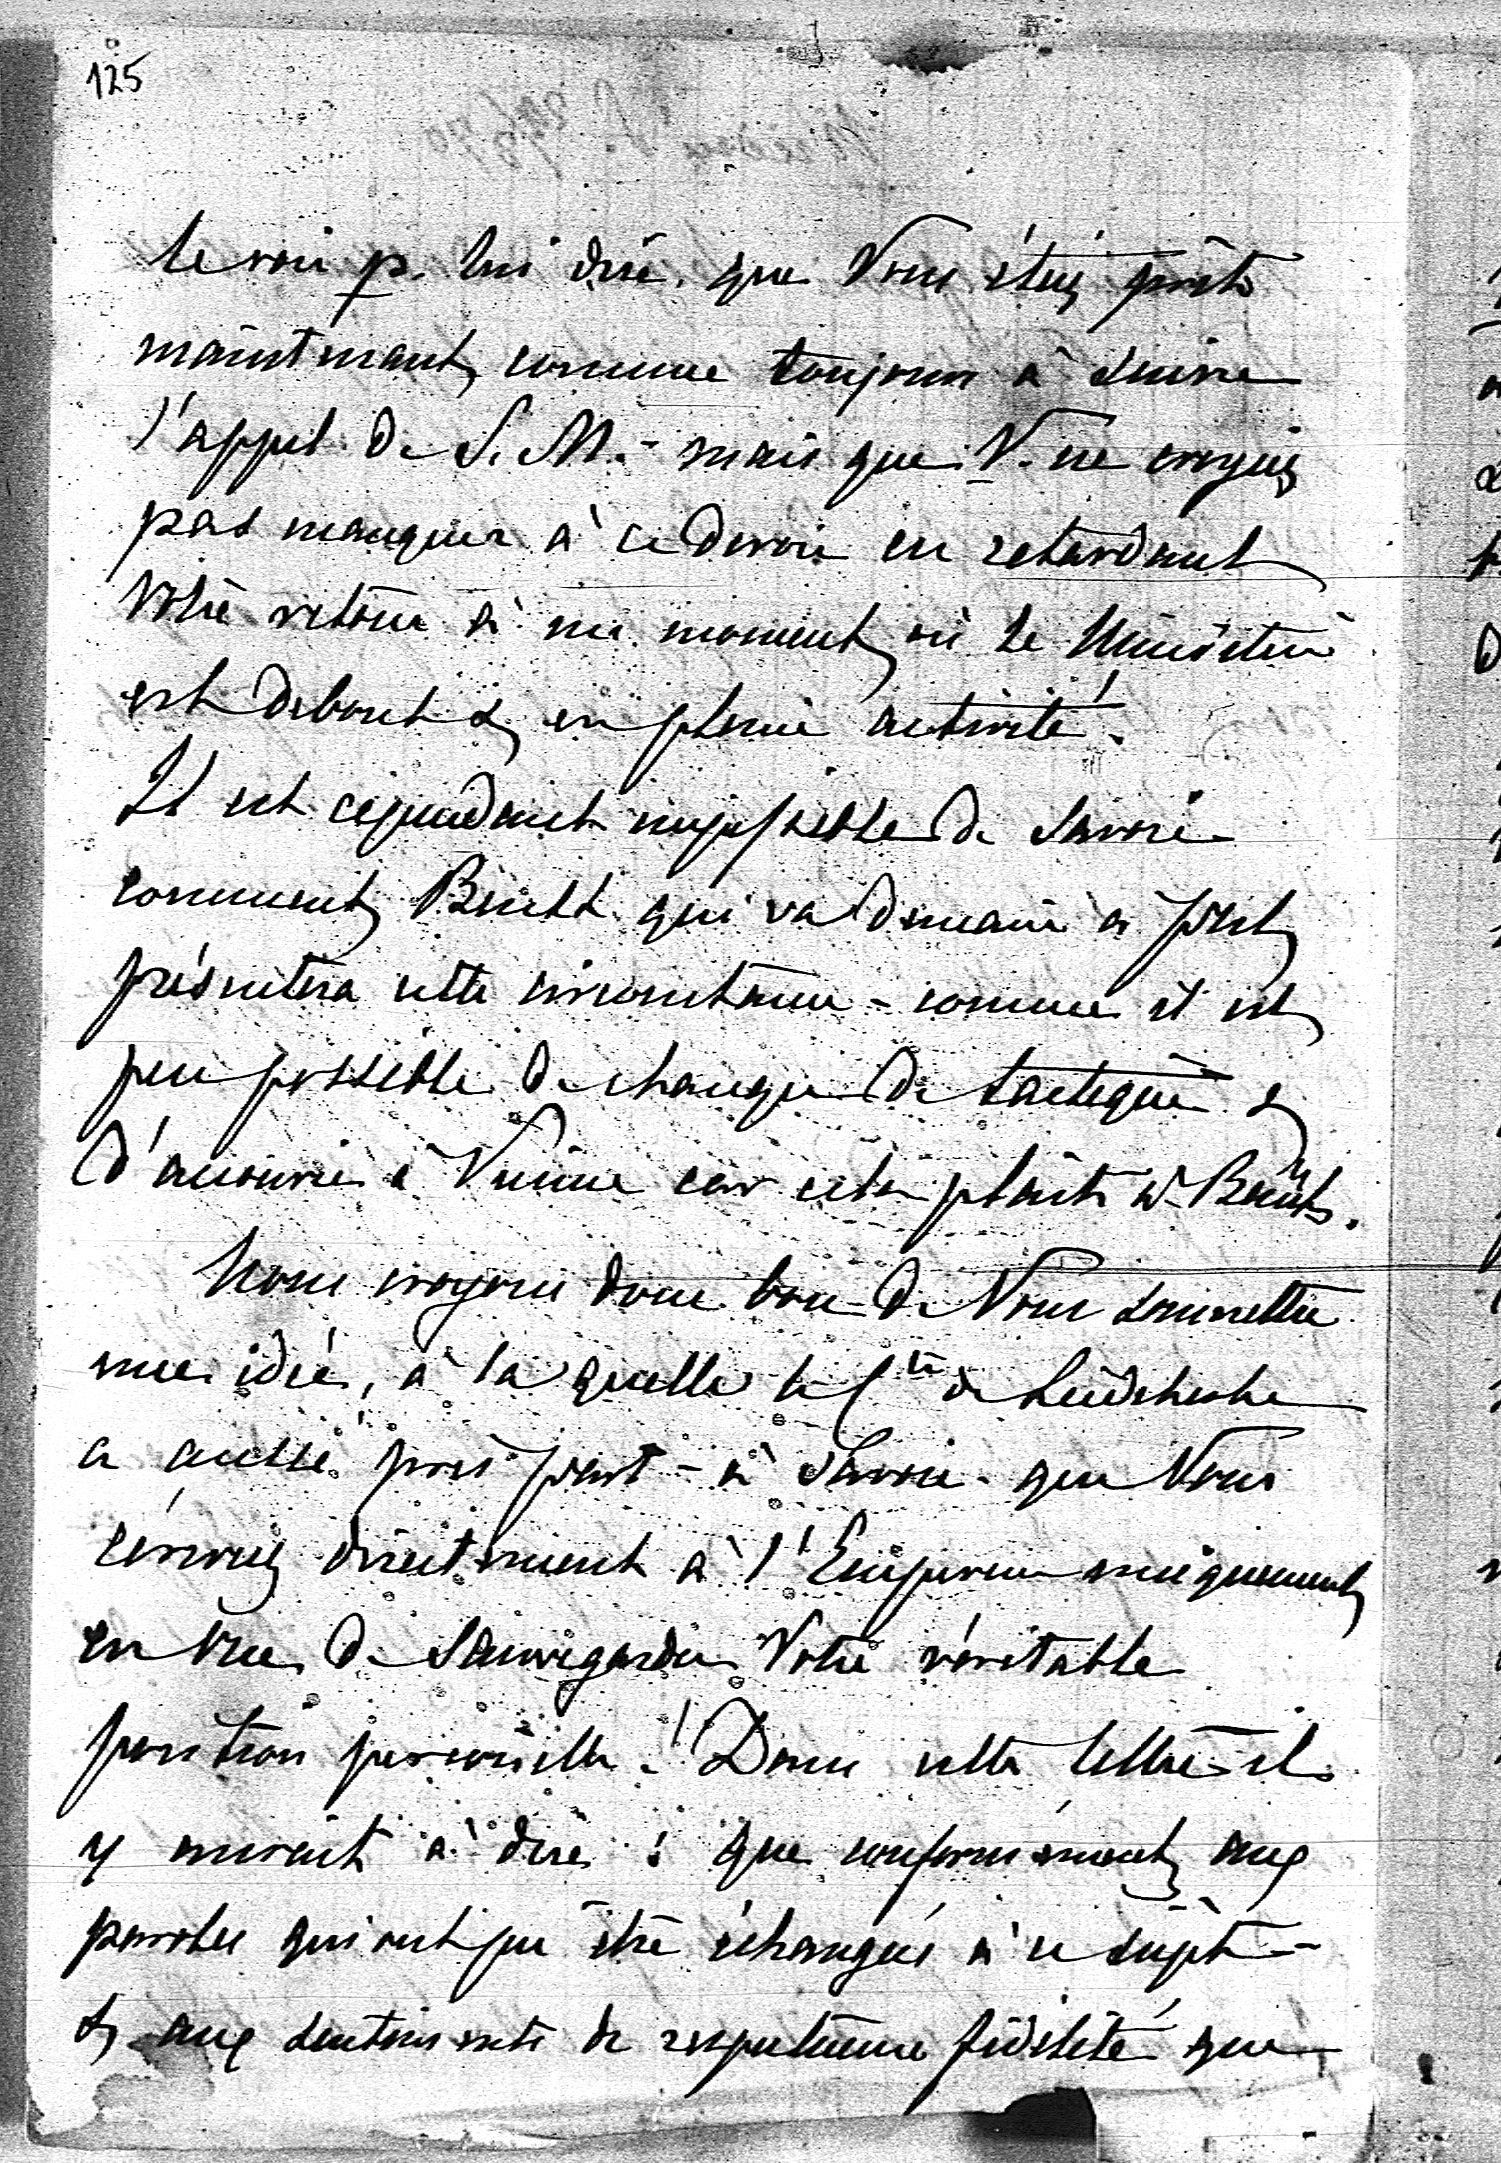 125
le voir p. lui dire que Vous étiez prêt
maintenant, comme toujours à suivre
l'appel de S. M. - mais que V. ne croyiez
pas manquer à ce devoir en retardant
Votre retour à un moment, où le Ministère
est debout & en pleine activité.
Il est cependant impossible de savoir
comment Beust qui va demain à Pest
présentera cette circonstance - comme il est
peu possible de changer de tactique &
d'accourir à Vienne car cela plaît à Beust.
Nous croyons donc bon de Vous soumettre
une idée, à la quelle le Cte de
a aussi pris part - à savoir que Vous
écriviez directement à l'Empereur uniquement
en vue de sauvegarder Votre véritable
position personnelle. Dans cette lettre il
y aurait à dire : que conformément aux
paroles qui ont pu être échangées à ce sujet -
& aux sentiments de respectueuse fidélité que